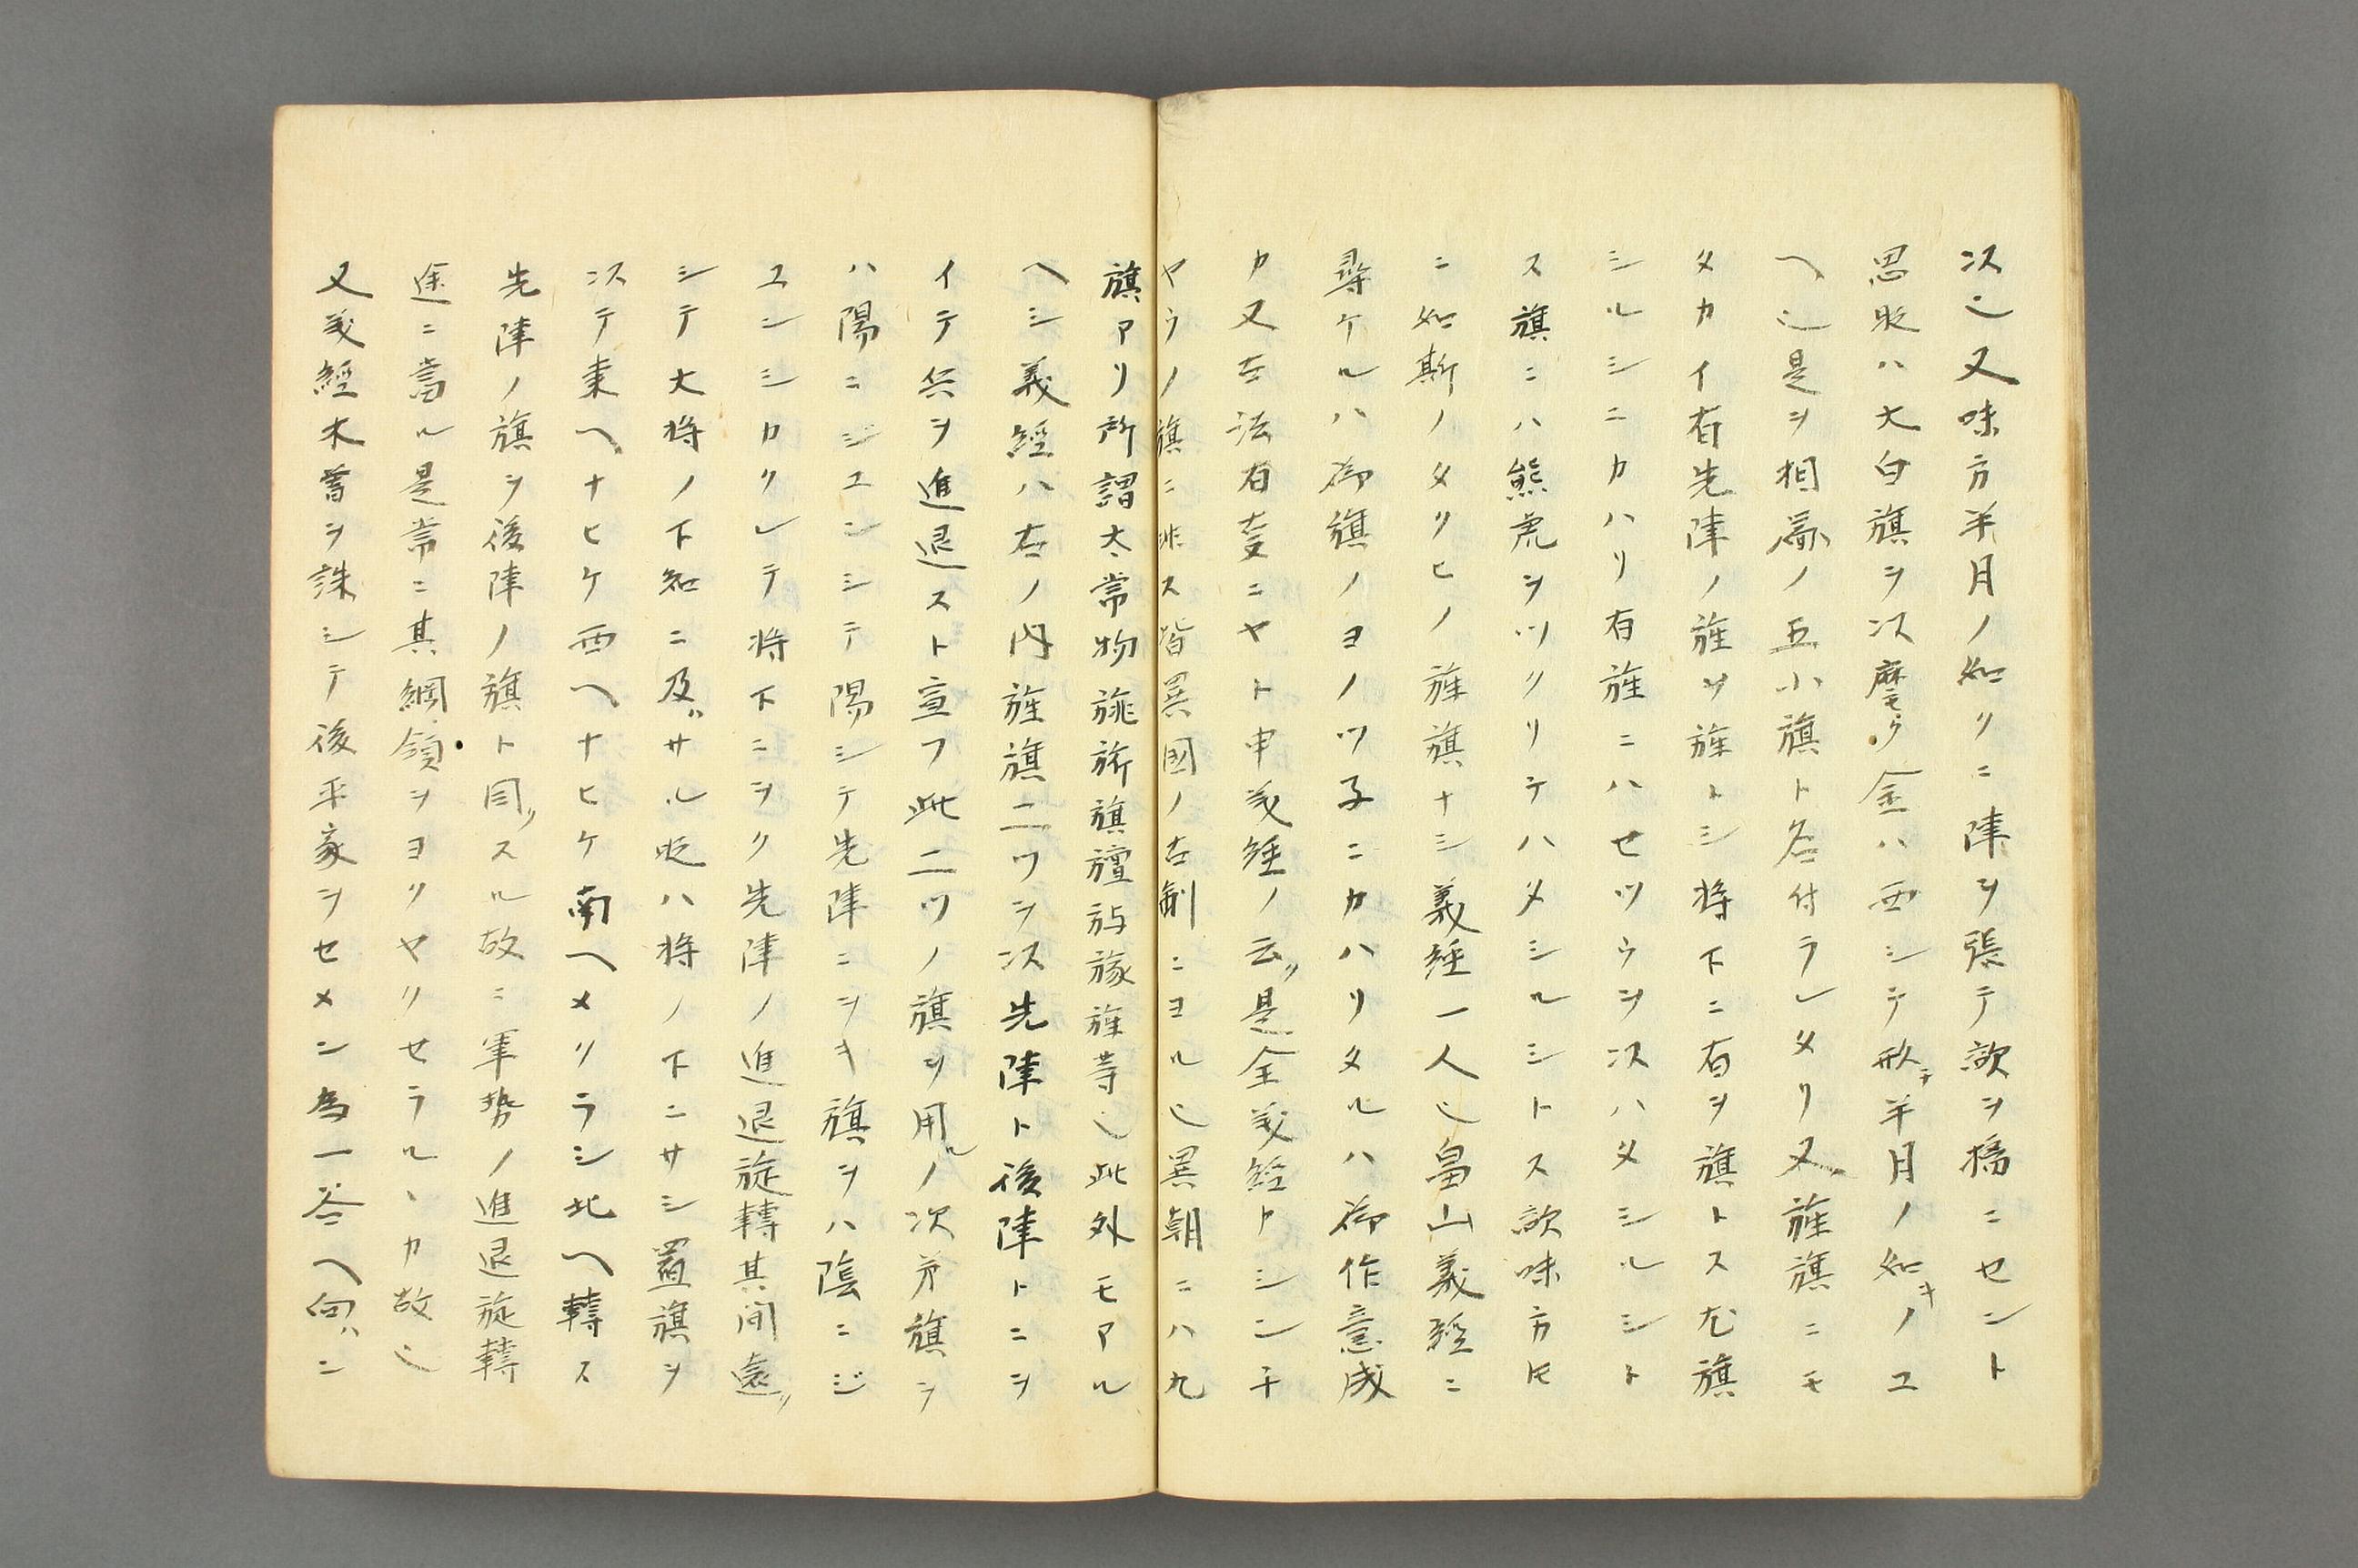 次也又味方半月ノ如クニ陣ヲ張テ敵ヲ擒ニセント
思時ハ大白旗ヲ以麾ク金ハ西シテ形チ半月ノ如キノユ
ヘ也是ヲ相圖ノ五小旗ト名付ラレタリ又旌旗ニモ
タカイ有先陣ノ旌ヲ旌トシ将下ニ有ヲ旗トス尤旗
シルシニカハリ有旌ニハセツウヲ以ハタシルシト
ス旗ニハ熊虎ヲツクリテハタシルシトス敵味方トモ
ニ如斯ノタクヒノ旌旗ナシ義経一人也畠山義経ニ
尋ケルハ御旗ノヨノツ子ニカハリタルハ御作意成
カ又古法有変ニヤト申義経ノ云是全義経カシンチ
ヤウノ旗ニ非ス皆異國ノ古制ニヨル也異朝ニハ九
旗アリ所謂太常物旐旂旗旜旟旞旌等也此外モアル
ヘシ義経ハ右ノ内旌旗二ツヲ以先陣ト後陣トニヲ
イテ兵ヲ進退スト宣フ此二ツノ旗ヲ用ルノ次㐧旗ヲ
ハ陽ニジユンシテ陽シテ先陣ニヲキ旗ヲハ陰ニジ
ユンシカクレテ将下ニヲク先陣ノ進退旋轉其間遠
シテ大将ノ下知ニ及サル時ハ将ノ下ニサシ置旗ヲ
以テ東ヘナヒケ西ヘナヒケ南ヘメクラシ北ヘ轉ス
先陣ノ旗ヲ後陣ノ旗ト同スル故ニ軍勢ノ進退旋轉
途ニ當ル是常ニ其綱領ヲヨクヤクセラルヽカ故也
又義經木曽ヲ誅シテ後平家ヲセメン為一谷ヘ向ハン